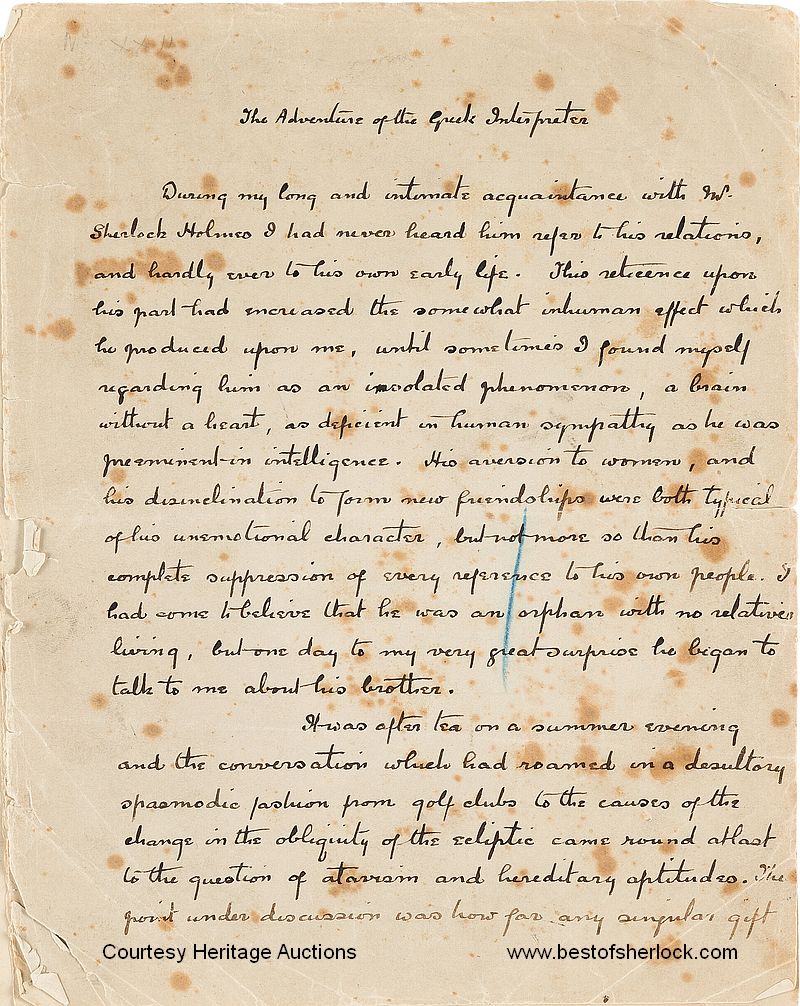 The Adventure of the Greek Interpreter
During my long and intimate acquaintance with Mr.
Sherlock Holmes I had never heard him refer to his relations,
and hardly ever to his own early life. This reticence upon
his part had encreased the somewhat inhuman effect which
he produced upon me, until sometimes I found myself
regarding him as an insolated phenomenon, a brain
without a heart, as deficient in human sympathy as he was
preeminent in intelligence. His aversion to women, and
his disinclination to form new friendships were both typical
of his unemotional character, but not more so than his
complete suppression of every reference to his own people. I
had come to believe that he was an orphan with no relatives
living, but one day to my very great surprise he began to
talk to me about his brother.
It was after tea on a summer evening
and the conversation which had roamed in a desultory
spasmodic fashion from golf clubs to the causes of the
change in the obliquity of the ecliptic came round at last
to the question of atavism and hereditary aptitudes. The
point under discussion was how far any singular gift
Courtesy Heritage Auctions
www.bestofsherlock.com